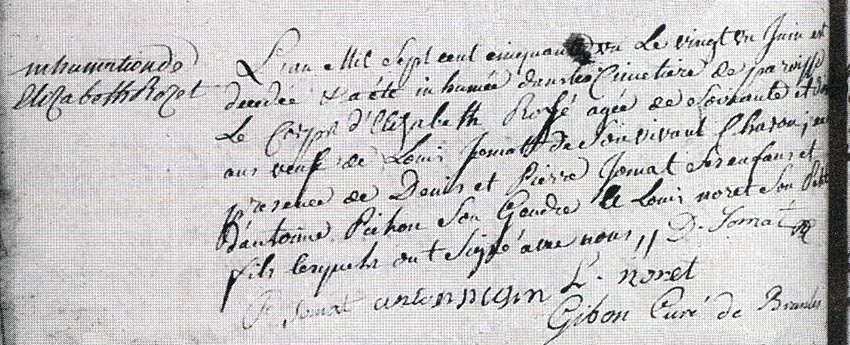 inhumation de
Elizabeth Rozet
L'an Mil Sept cent cinquante un Le vingt un Juin est
decedée & a été inhumée dans le Cimetiere de paroisse
Le Corps d'Elizabeth Rozé agée de Soixante et
ans veufe de Louis Jomatt de Son vivant Charon; en
presence de Denis et Pierre Jomat Ses enfans et
D'antoine Pichon Son Gendre & Louis noret Son Petit
fils lesquels ont Signé avec nous // D. Jomat
P. Jomat anton pichon L. noret
Gibon Curé de